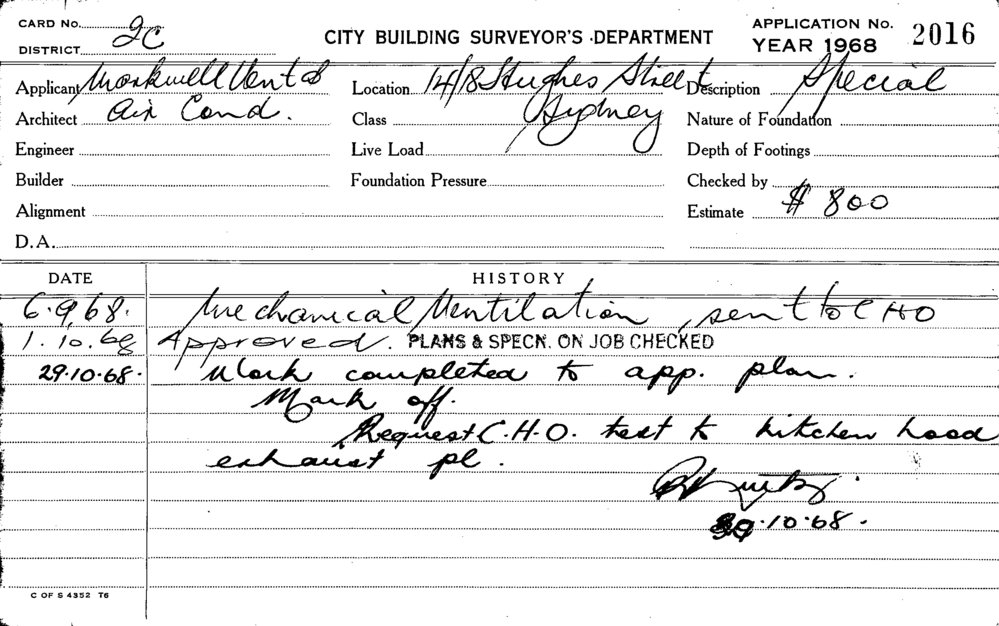 CARD No.
DISTRICT 2C
CITY BUILDING SURVEYOR'S DEPARTMENT
APPLICATION No. 2016
YEAR 1968
Applicant Markwell Vent &
Location 14/18 Hughes Street
Description Special
Architect Air Cond.
Class Sydney
Nature of Foundation
Engineer
Live Load
Depth of Footings
Builder
Foundation Pressure
Checked by
Alignment
Estimate $ 800
D.A.
DATE HISTORY
6.9.68. Mechanical Ventilation, sent to C HO
1.10.68 Approved. PLANS & SPECN. ON JOB CHECKED
29.10.68. Work completed to app. plan.
Mark off.
Request C.H.O. test to kitchen hood
exhaust pl.
.10.68.
C OF S 4352 T6